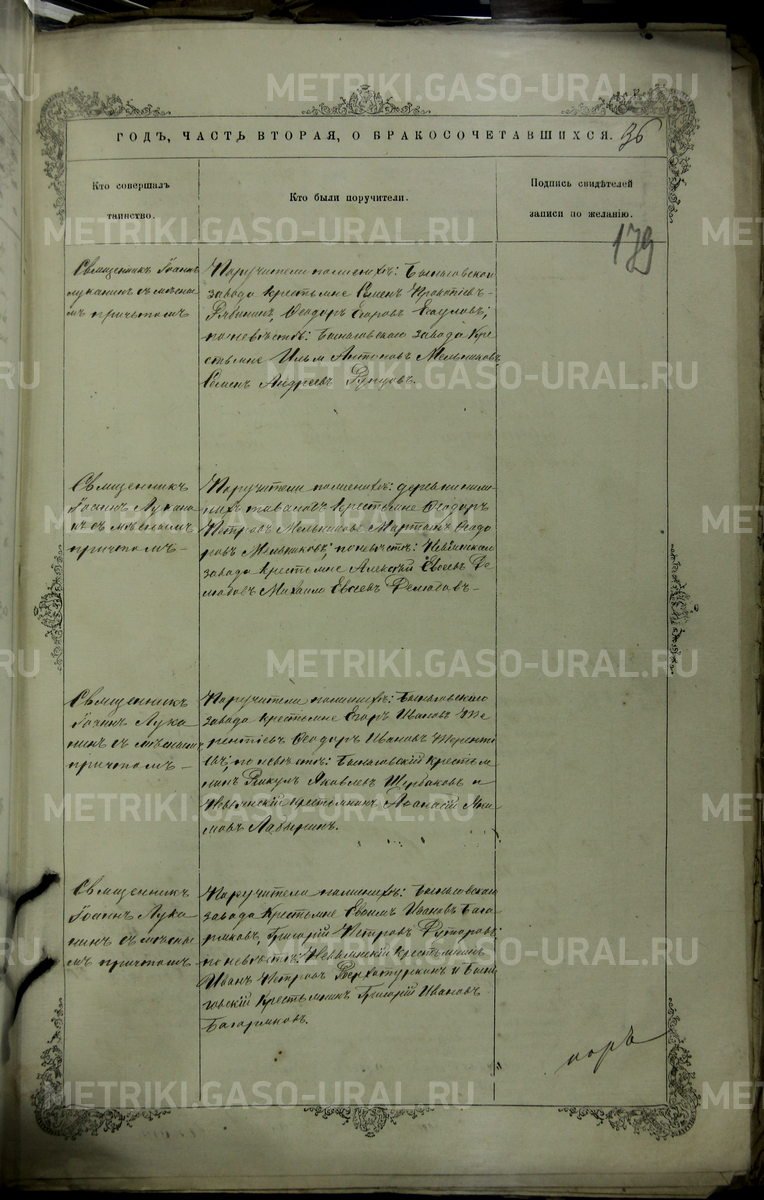 ГОДЪ, ЧАСТЬ ВТОРАЯ, О БРАКОСОЧЕТАВШИХСЯ. 36
Кто совершалъ
таинство.
Кто были поручители.
Подпись свидѣтелей
записи по желанію.
179
Священникъ Іоаннъ
Луканинъ съ мѣстны
мъ причтомъ
Поручители по женихѣ: Быньговскаго
завода крестьяне Семенъ Прокопіевъ
Рябининъ, Ѳеодоръ Егоровъ
по невѣстѣ: Быньговскаго завода кре
стьяне Илья Антоновъ Мельниковъ,
Семенъ Андреевъ
Священникъ
Іоаннъ Лукани
нъ съ мѣстнымъ
причтомъ
Поручители по женихѣ: деревни
крестьяне Ѳеодоръ
Петровъ Мельниковъ Ѳеодо
ровъ Мельниковъ; по невѣстѣ: Невьянскаго
завода крестьяне Алексѣй Евсеевъ
Михаило Евсеевъ
Священникъ
Іоаннъ Лука
нинъ съ мѣстнымъ
причтомъ
Поручители по женихѣ: Быньговскаго
завода крестьяне Егоръ Ивановъ Те
рентіевъ Ѳеодоръ Ивановъ Теренті
евъ; по невѣстѣ: Быньговскій крестья
нинъ Викулъ Яковлевъ Щербаковъ и
Невьянскій крестьянинъ Аѳанасій Яки
мовъ
Священникъ
Іоаннъ Лука
нинъ съ мѣстны
мъ причтомъ
Поручители по женихѣ: Быньговскаго
завода крестьяне Евѳимъ Ивановъ Бага
ряковъ, Григорій Петровъ
по невѣстѣ: Невьянскій крестьянинъ
Иванъ Петровъ Верхотуркинъ и Бынь
говскій крестьянинъ Григорій Ивановъ
Багаряковъ.
METRIKI.GASO-URAL.RU